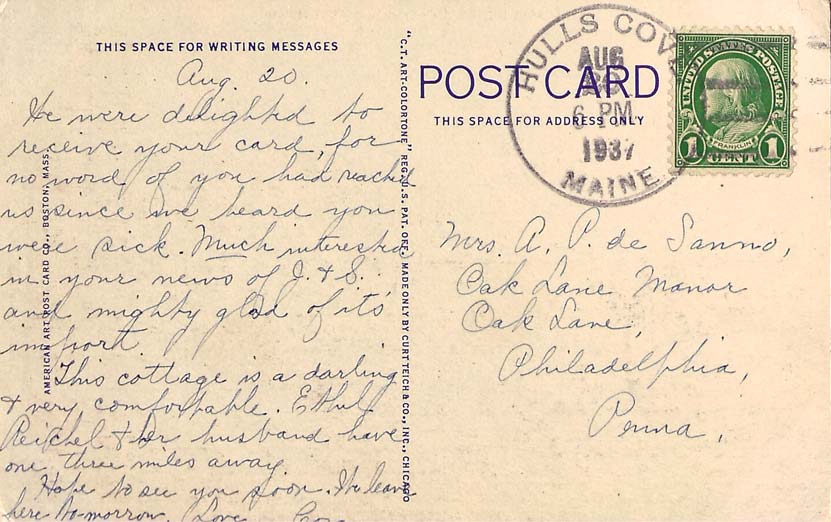 THIS SPACE FOR WRITING MESSAGES
Aug. 20.
We were delighted to
receive your card, for
no word of you had reached
us since we heard you
were sick. Much interested
in your news of J. & S.
and mighty glad of its
import.
This cottage is a darling
& very comfortable. Ethel
Reichel & her husband have
one three miles away
Hope to see you soon. We leave
here to-morrow. Love
AMERICAN ART POST CARD CO., BOSTON, MASS.
"C.T. ART-COLORTONE" REG. U.S. PAT. OFF. MADE ONLY BY CURT TEICH & CO., INC., CHICAGO
POST CARD
THIS SPACE FOR ADDRESS ONLY
HULLS COVE
AUG
6 PM
1937
MAINE
UNITED STATES POSTAGE
FRANKLIN
1 CENT 1
Mrs. A. P. de Sanno,
Oak Lane Manor
Oak Lane,
Philadelphia,
Penna,